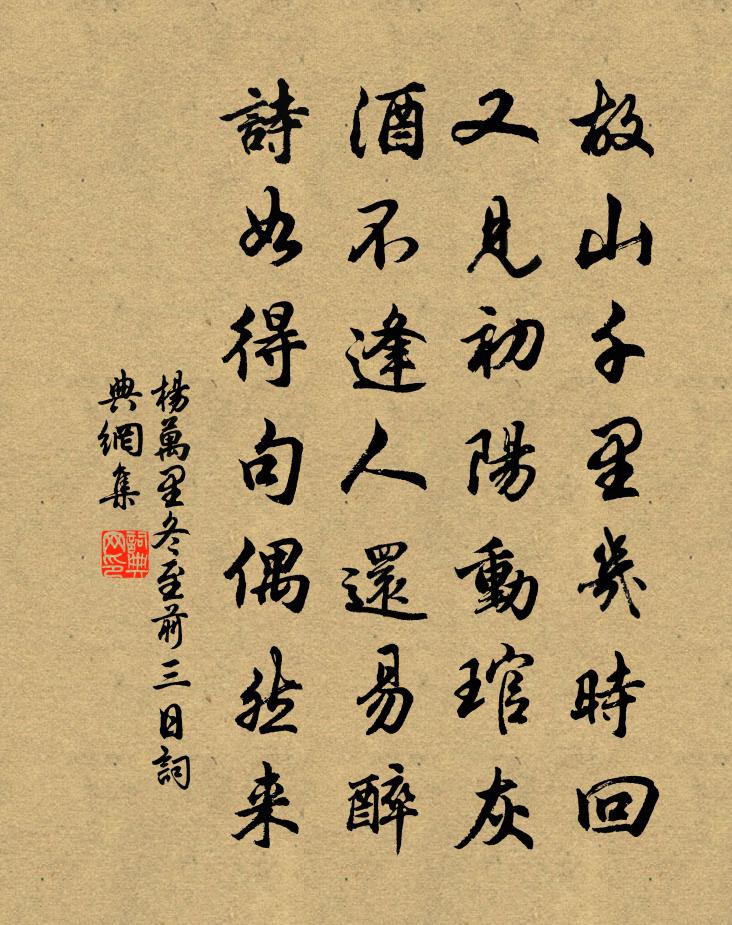 故山千里幾時回
又見初陽動琯灰
酒不逢人還易醉
詩如得句偶然来
楊萬里冬至前三日詞
典網集
詞典
网印